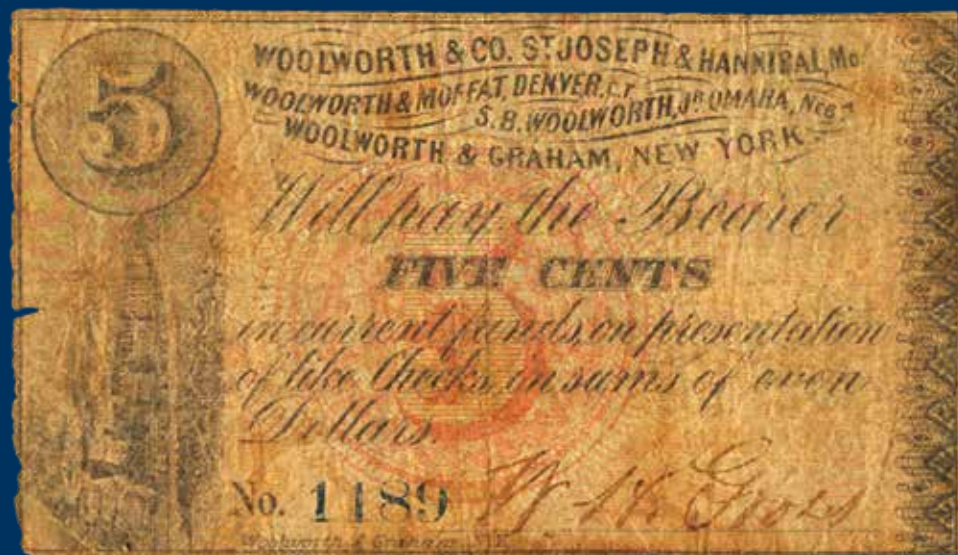 5
WOOLWORTH & CO. ST JOSEPH & HANNIBAL, Mo.
WOOLWORTH & MOFFAT, DENVER, C.T.
S. B. WOOLWORTH, JR OMAHA, Neb.
WOOLWORTH & GRAHAM, NEW YORK.
Will pay the Bearer
FIVE CENTS
5
in current funds, on presentation
of like Checks, in sums of even
Dollars.
No. 1189
Woolworth & Graham